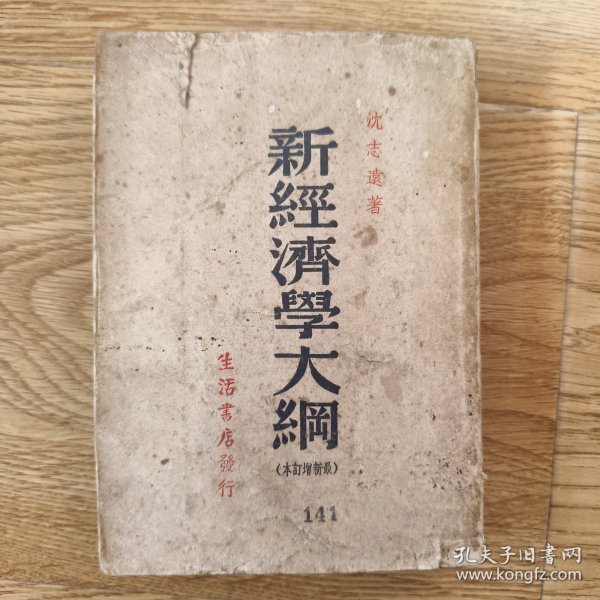 沈志遠著
新經濟學大綱
（最新增訂本）
生活書店發行
141
孔夫子旧書网
www.kongfz.com